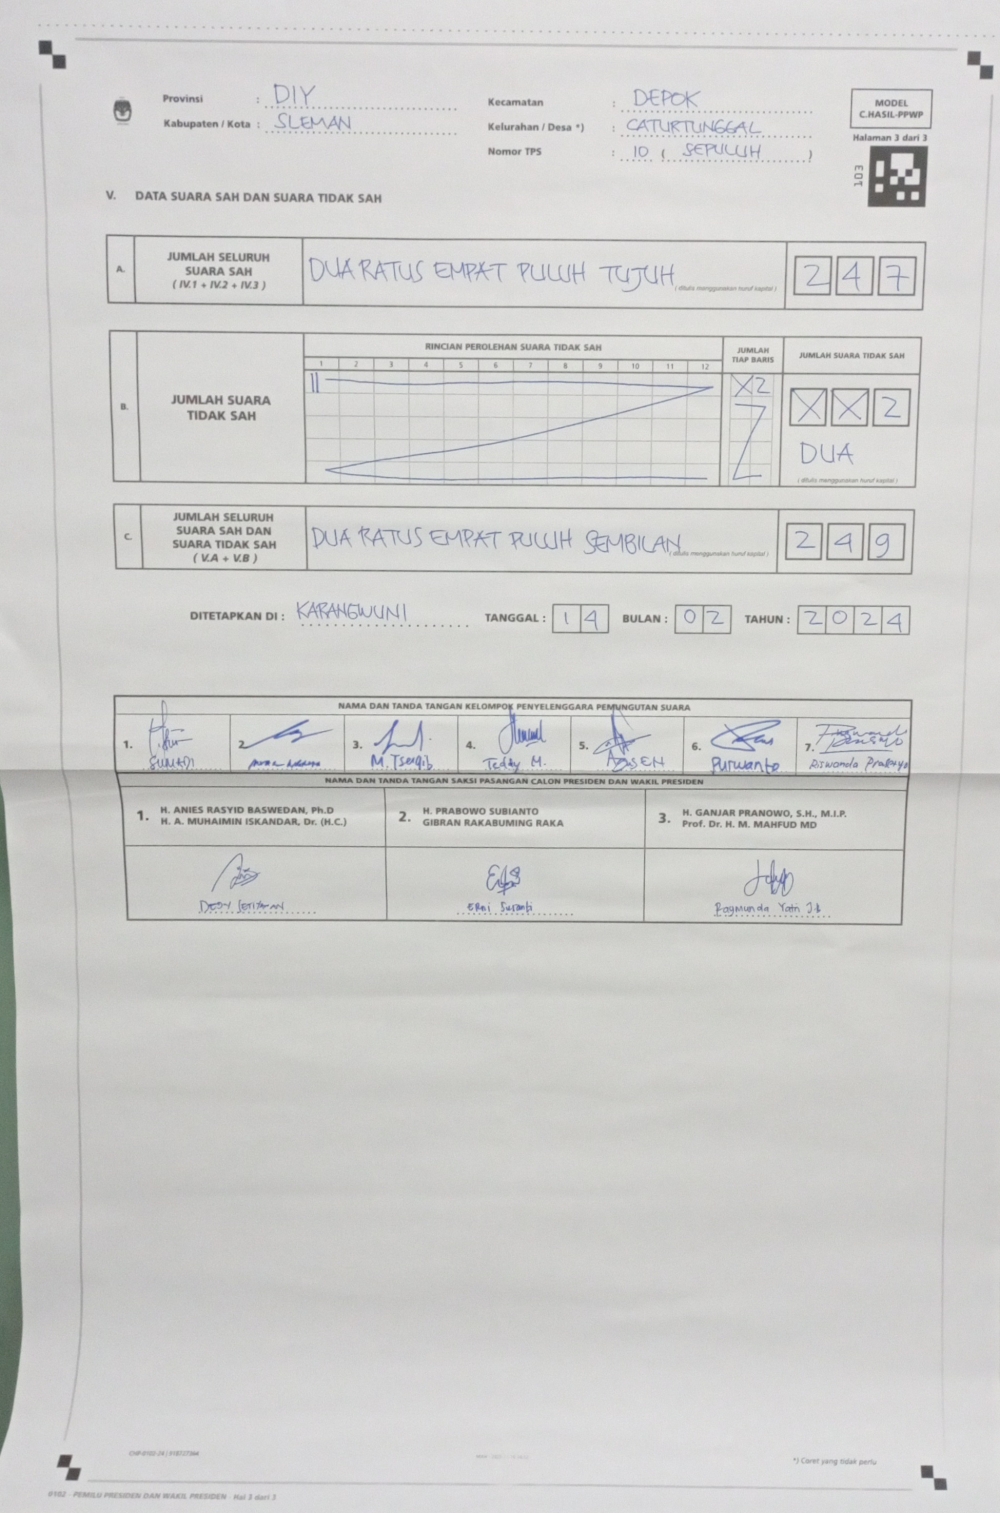 Provinsi : DIY
Kabupaten / Kota : SLEMAN
Kecamatan : DEPOK
Kelurahan / Desa *) : CATURTUNGGAL
Nomor TPS : 10 ( SEPULUH )
MODEL
C.HASIL-PPWP
Halaman 3 dari 3
103
V. DATA SUARA SAH DAN SUARA TIDAK SAH
A. JUMLAH SELURUH SUARA SAH ( IV.1 + IV.2 + IV.3 )
DUA RATUS EMPAT PULUH TUJUH
( ditulis menggunakan huruf kapital )
2 4 7
B. JUMLAH SUARA TIDAK SAH
RINCIAN PEROLEHAN SUARA TIDAK SAH
1 2 3 4 5 6 7 8 9 10 11 12
JUMLAH TIAP BARIS
X2
JUMLAH SUARA TIDAK SAH
X X 2
DUA
( ditulis menggunakan huruf kapital )
C. JUMLAH SELURUH SUARA SAH DAN SUARA TIDAK SAH ( V.A + V.B )
DUA RATUS EMPAT PULUH SEMBILAN
( ditulis menggunakan huruf kapital )
2 4 9
DITETAPKAN DI : KARANGWUNI TANGGAL : 14 BULAN : 02 TAHUN : 2024
NAMA DAN TANDA TANGAN KELOMPOK PENYELENGGARA PEMUNGUTAN SUARA
1. 2. 3. 4. 5. 6. 7.
SUMADI M. Tsaqib Teddy M. Purwanto
NAMA DAN TANDA TANGAN SAKSI PASANGAN CALON PRESIDEN DAN WAKIL PRESIDEN
1. H. ANIES RASYID BASWEDAN, Ph.D
H. A. MUHAIMIN ISKANDAR, Dr. (H.C.)
2. H. PRABOWO SUBIANTO
GIBRAN RAKABUMING RAKA
3. H. GANJAR PRANOWO, S.H., M.I.P.
Prof. Dr. H. M. MAHFUD MD
DEDY SETIAWAN
ERNI
Yatri
*) Coret yang tidak perlu
0102 - PEMILU PRESIDEN DAN WAKIL PRESIDEN - Hal 3 dari 3